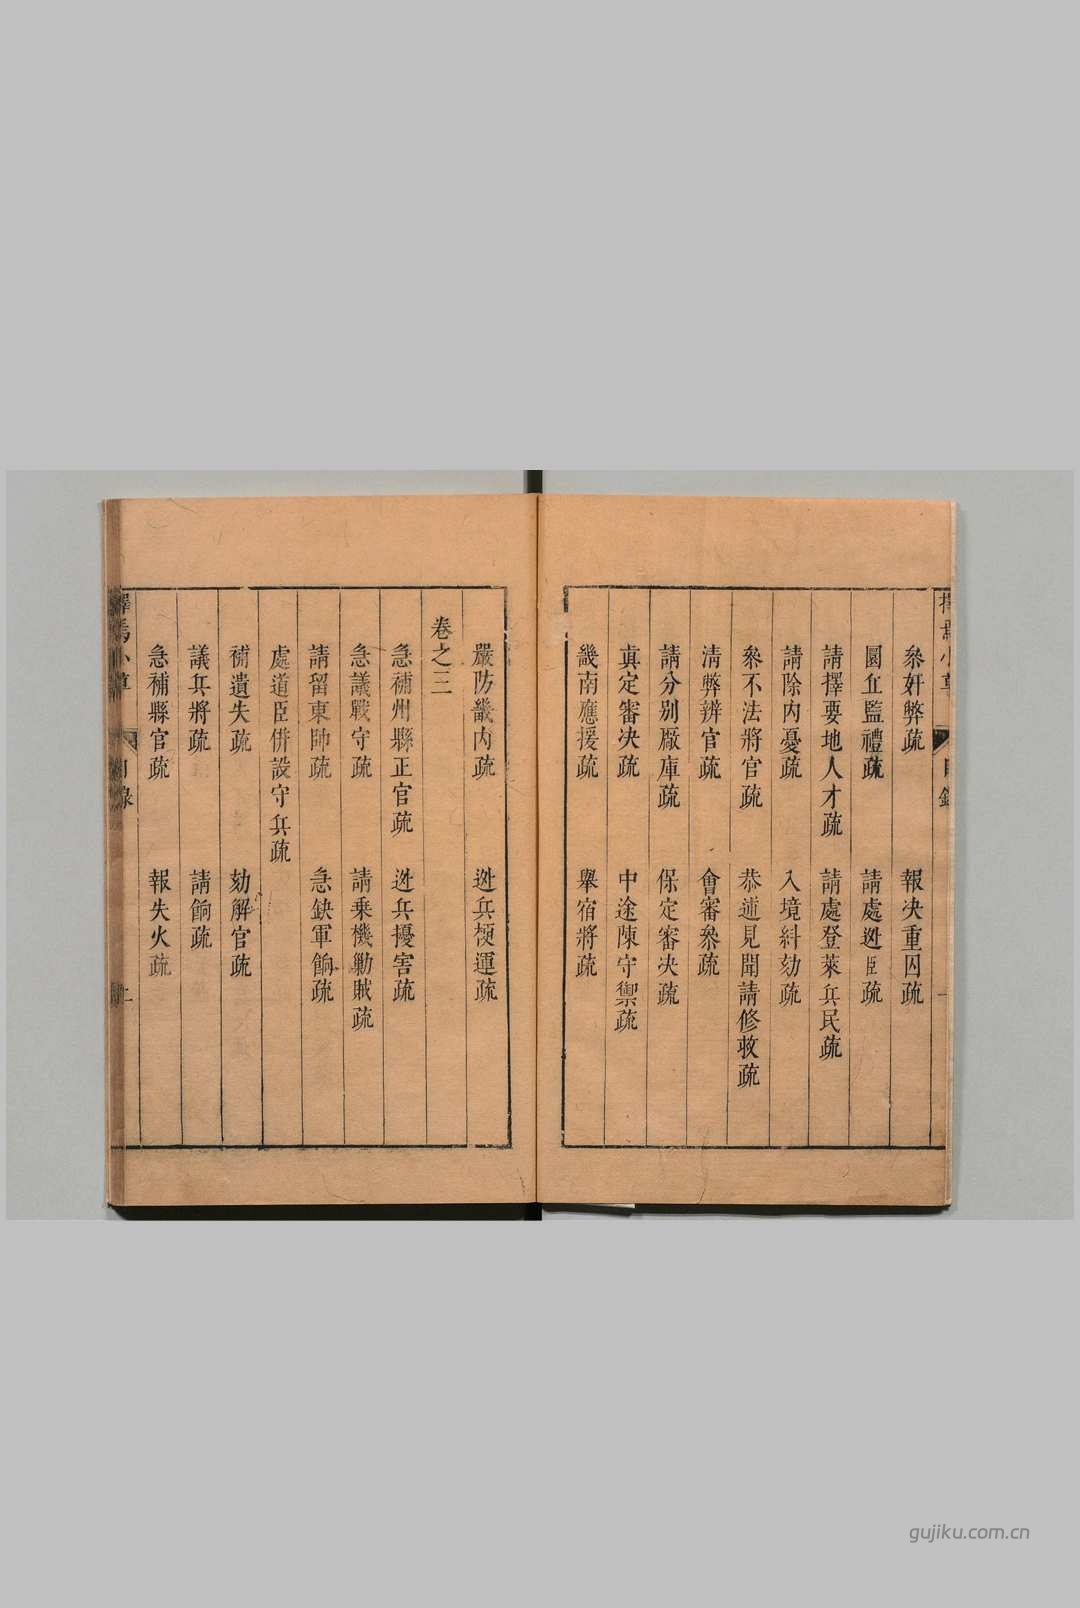 叅奸弊疏　報决重囚疏
圜丘監禮疏　請處逃臣疏
請擇要地人才疏　請處登萊兵民疏
請除内憂疏　入境糾劾疏
叅不法將官疏　恭述見聞請修救疏
清弊辨官疏　會審叅疏
請分别厰庫疏　保定審决疏
真定審决疏　中途陳守禦疏
畿南應援疏　舉宿將疏
嚴防畿内疏　逃兵梗運疏
卷之三
急補州縣正官疏　逃兵擾害疏
急議戰守疏　請乗機勦賊疏
請留東師疏　急缺軍餉疏
處道臣併設守兵疏
補遺失疏　劾解官疏
議兵將疏　請餉疏
急補縣官疏　報失火疏
gujiku.com.cn